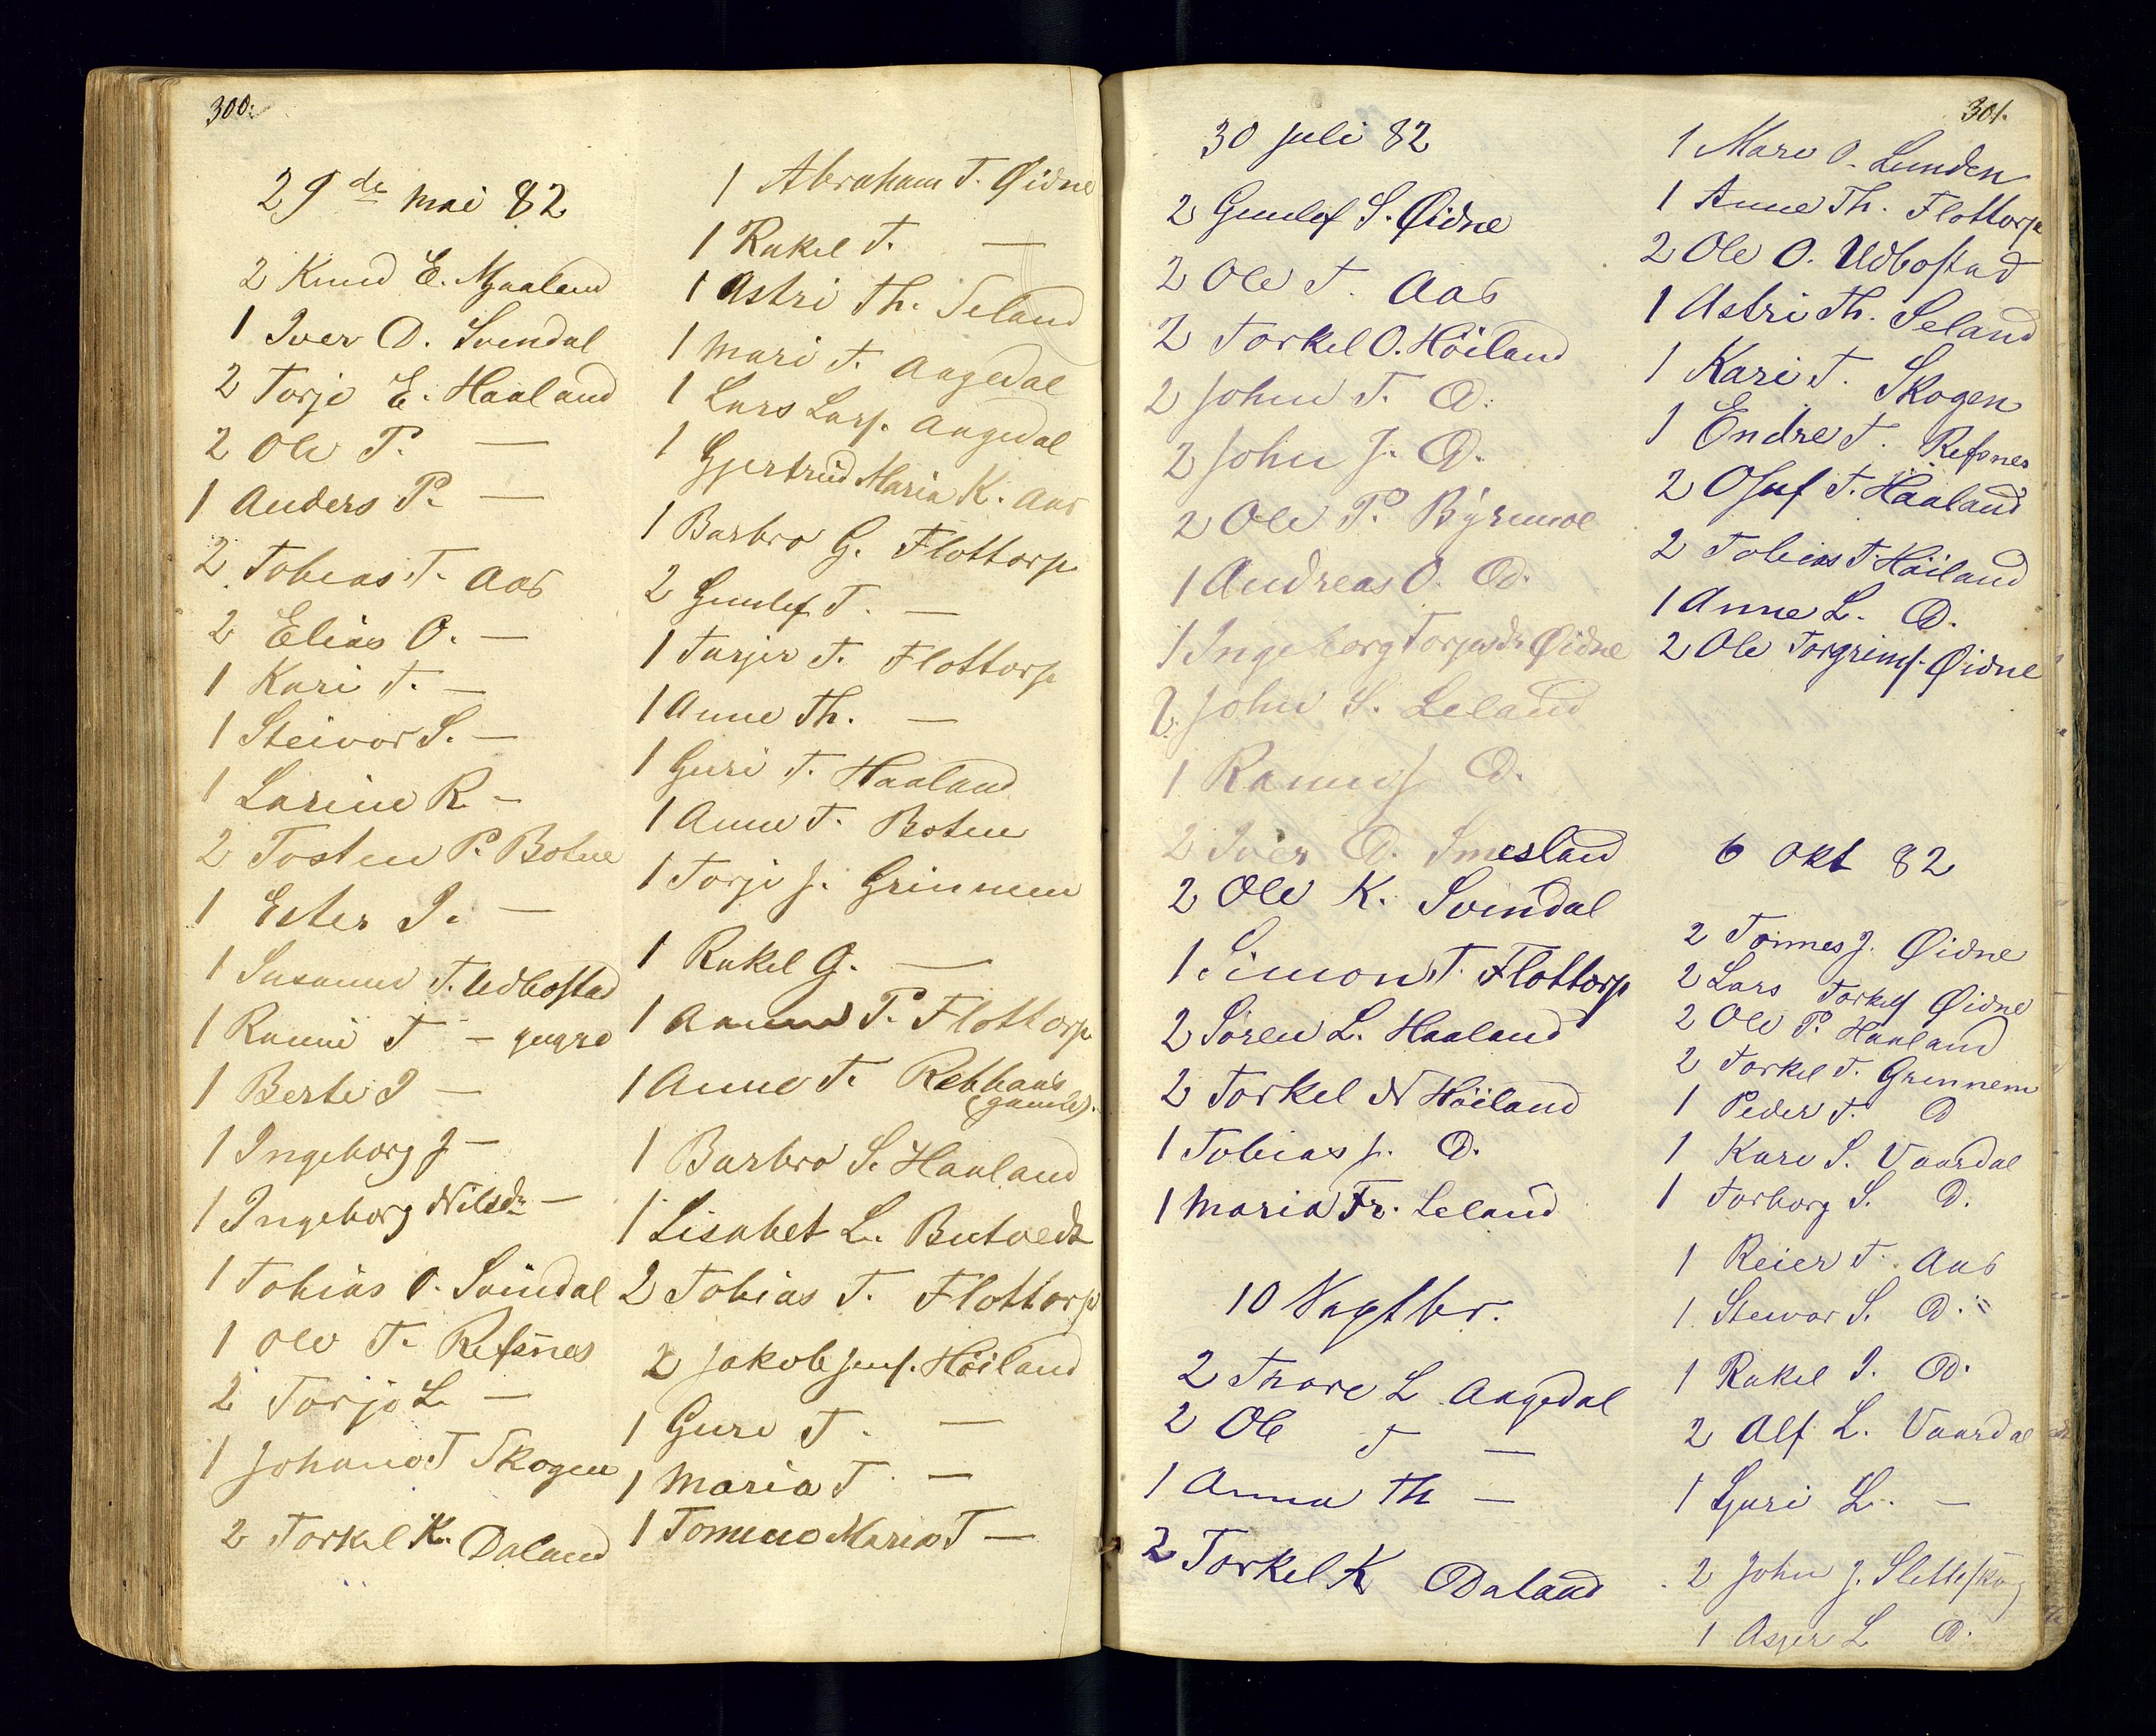 300.
29de mai 82
2 Knud E. Mjaaland
1 Iver O. Svindal
2 Torje E. Haaland
2 Ole P. —
1 Anders P. —
2 Tobias T. Aas
2 Elias O. —
1 Kari T. —
1 Steivor S. —
1 Larine R —
2 Tosten P. Botne
1 Ester I. —
1 Susanne T. Udbostad
1 Ranni T — yngre
1 Berte I —
1 Ingeborg J —
1 Ingeborg Nilsdr —
1 Tobias O. Svindal
1 Ole T. Refsnes
2 Torje L. —
1 Johanne T Skogen
2 Torkel K. Daland
1 Abraham T. Øidne
1 Rakel T. —
1 Astri Th. Seland
1 Mari T. Aagedal
1 Lars Lars. Aagedal
1 Gjertrud Maria K. Aas
1 Barbro G. Flottorp
2 Gunlef T. —
1 Tarjer T. Flottorp
1 Anne Th. —
1 Guri T. Haaland
1 Anne T. Botne
1 Torje J. Grinnem
1 Rakel G. —
1 Anne P. Flottorp
1 Anne T. Rebbaas
(gamle).
1 Barbro S. Haaland
1 Lisabet L. Butvedt
2 Tobias T. Flottorp
2 Jakob Jens. Höiland
1 Guro T. —
1 Maria T —
1 Tomine Maria T —
301.
30 juli 82
2 Gunlef S. Øidne
2 Ole T. Aas
2 Torkel O. Höiland
2 John T. D.
2 John J. D.
2 Ole P. Byremoe
1 Andreas O. D.
1 Ingeborg Torjesdr Øidne
2 John S. Leland
1 Ranni J D.
2 Iver D. Smesland
2 Ole K. Svindal
1 Simon T. Flottorp
2 Sören L. Haaland
2 Torkel N Höiland
1 Tobias J. D.
1 Maria Fr. Leland
10
2 Thore L Aagedal
2 Ole T —
1 Anna Th —
2 Torkel K Daland
1 Mari O. Lunden
1 Anne Th. Flottorp
2 Ole O. Udbostad
1 Astri Th. Seland
1 Kari T. Skogen
1 Endre T. Refsnes
2 Osuf T. Haaland
2 Tobias T. Höiland
1 Anne L. D.
2 Ole Torgrims. Øidne
6 Okt 82
2 Tönnes J. Øidne
2 Lars Torkels Øidne
2 Ole P. Haaland
2 Torkel T. Grinnem
1 Peder T. D
1 Kari S. Vaardal
1 Torborg S. D.
1 Reier T. Aas
1 Steivor S. D.
1 Rakel I. D.
2 Alf L. Vaardal
1 Guri L. —
2 John J. Sletteskog
1 Asger L D.